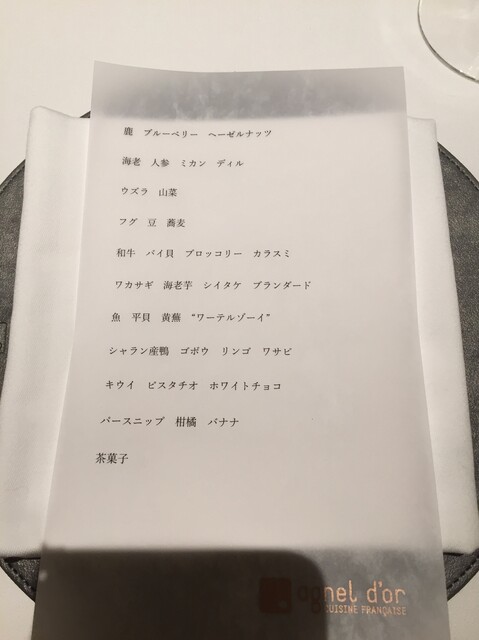 鹿　ブルーベリー　ヘーゼルナッツ
海老　人参　ミカン　ディル
ウズラ　山菜
フグ　豆　蕎麦
和牛　バイ貝　ブロッコリー　カラスミ
ワカサギ　海老芋　シイタケ　ブランダード
魚　平貝　黄蕪　“ワーテルゾーイ”
シャラン産鴨　ゴボウ　リンゴ　ワサビ
キウイ　ピスタチオ　ホワイトチョコ
パースニップ　柑橘　バナナ
茶菓子
agnel d'or
CUISINE FRANÇAISE